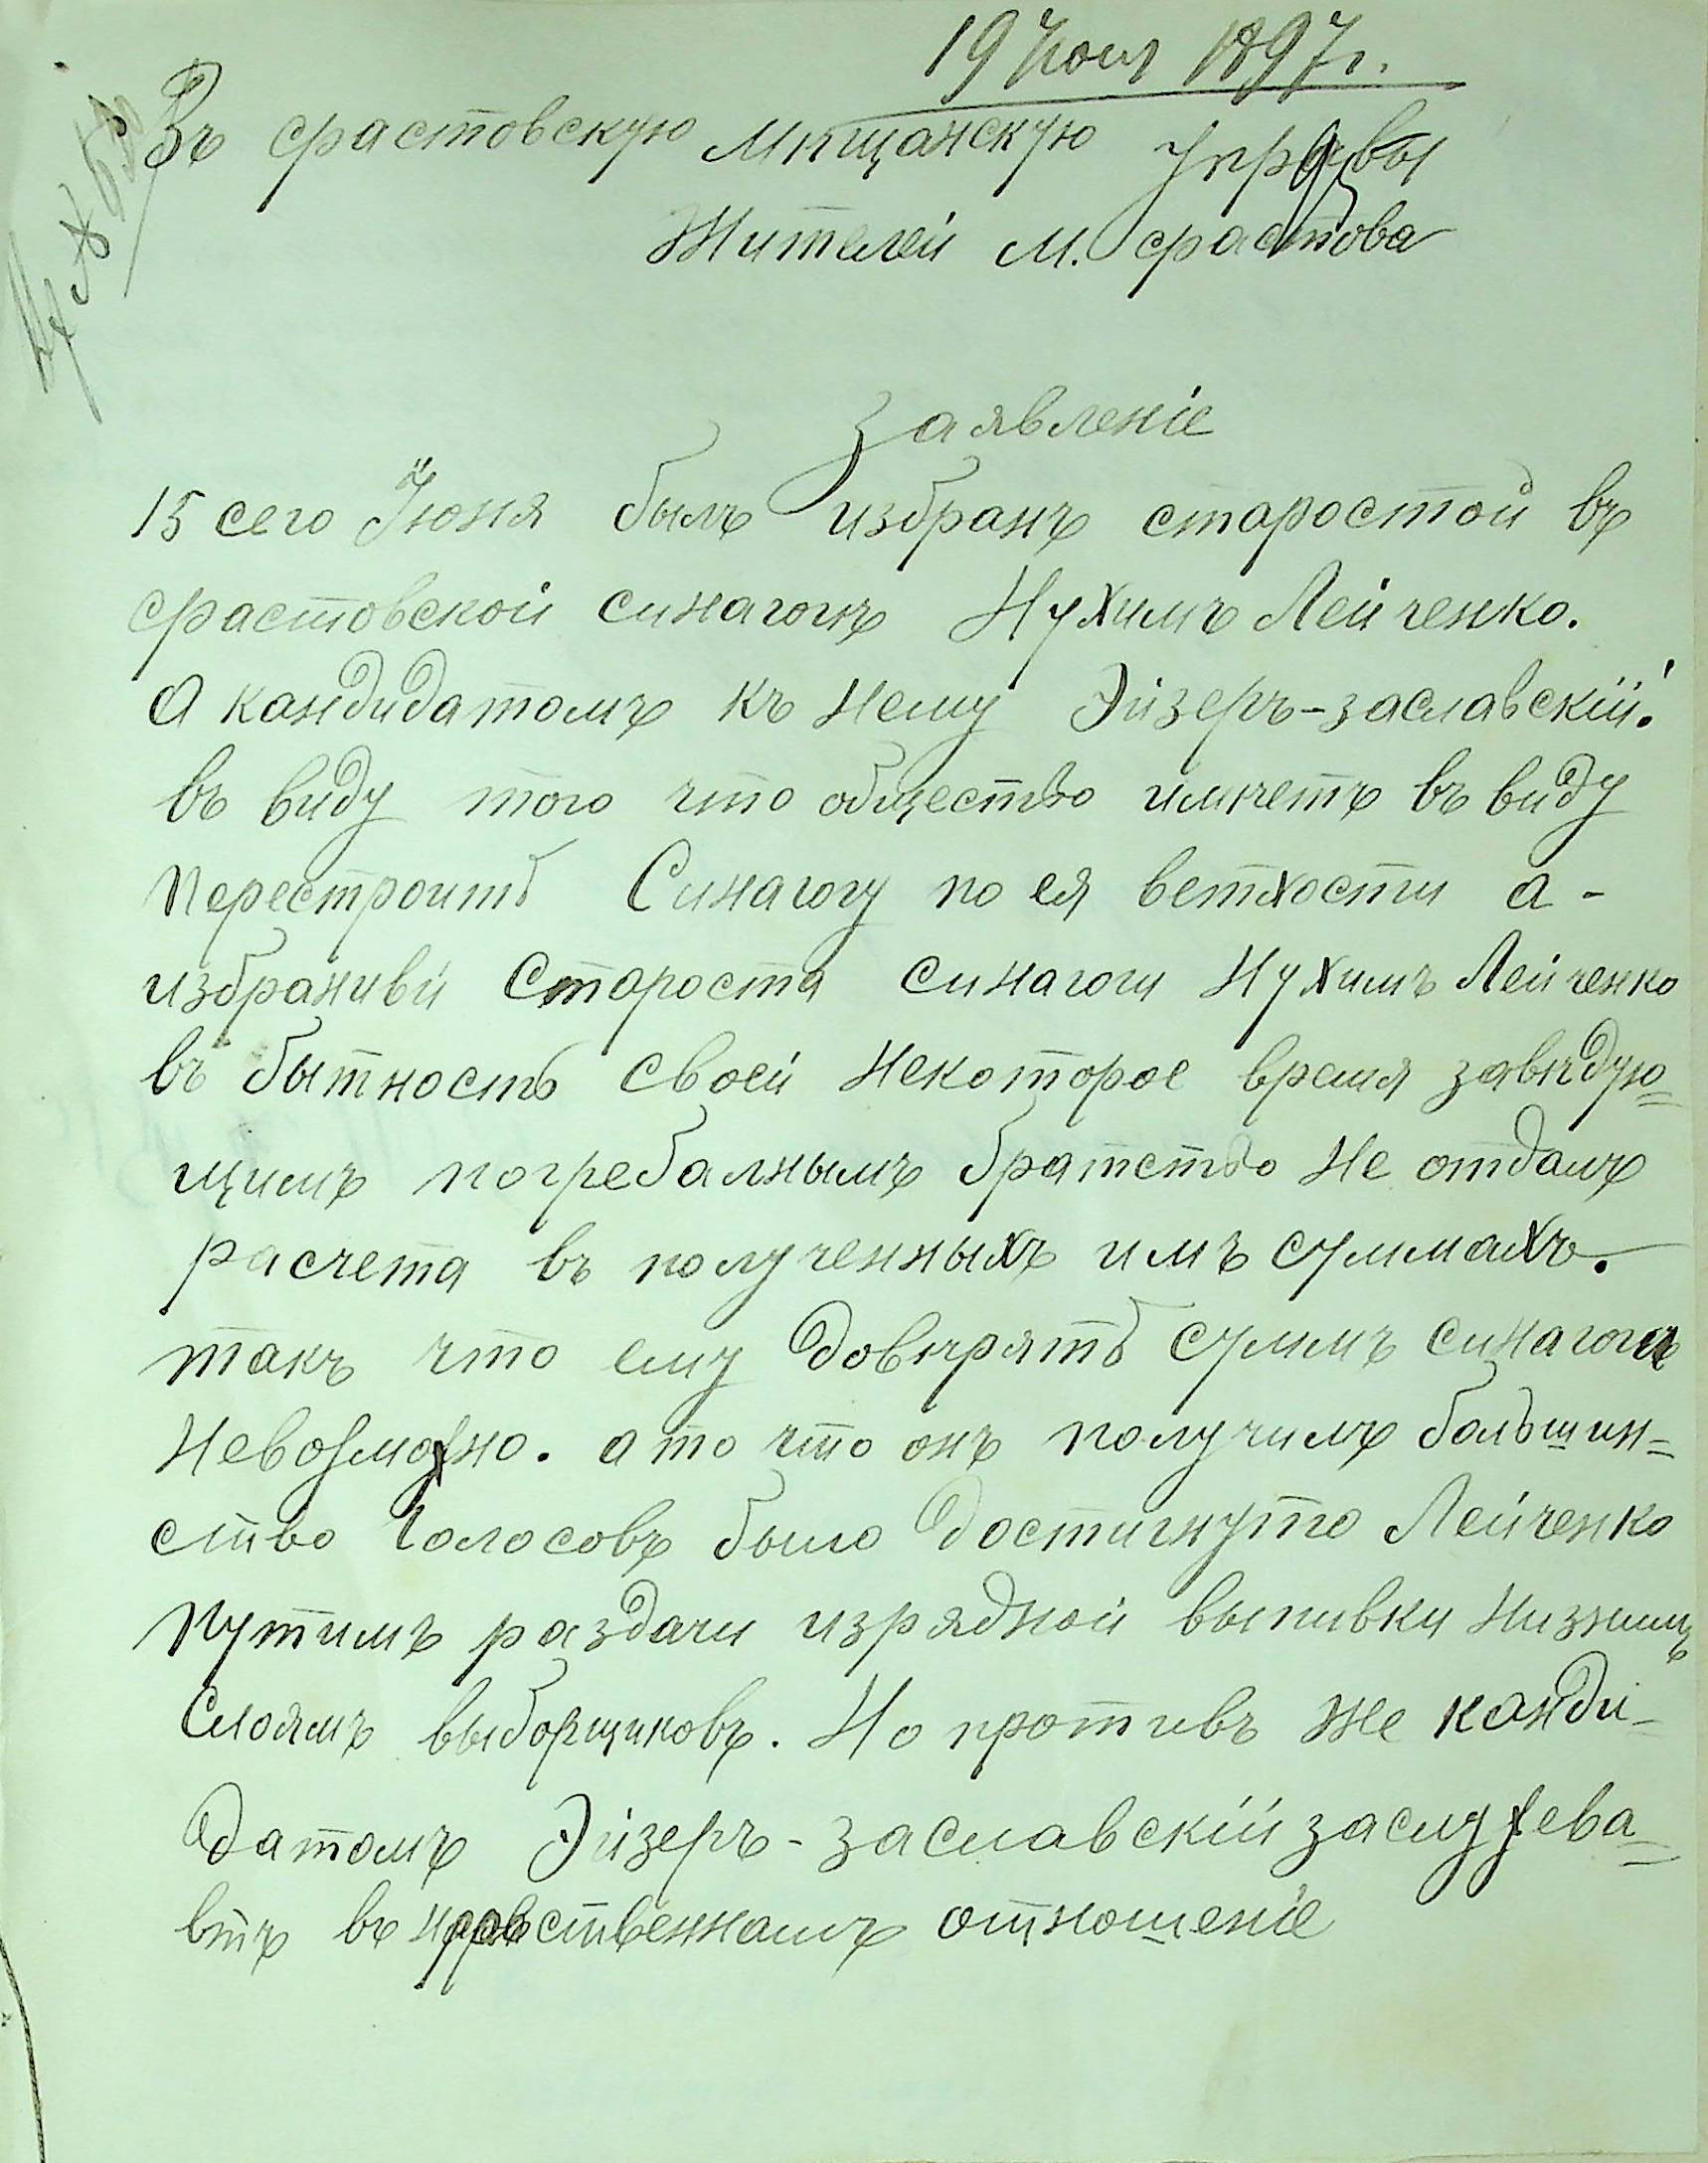 19 Июня 1897 г.
Въ фастовскую Мѣщанскую Управы
Жителей м. фастова
Заявленіе
15 сего Іюня былъ избранъ старостой въ
фастовской синагогѣ Нухимъ Лейченко.
А кандидатомъ къ нему Эйзеръ-заславскій.
въ виду того что общество имѣетъ въ виду
перестроить Синагогу по ея ветхости а -
избраниви Староста синагоги Нухимъ Лейченко
въ бытность своей некоторое время завѣдую=
щимъ погребалнымъ братство не отдалъ
расчета въ полученныхъ имъ суммахъ.
такъ что ему довѣрять суммъ синагогѣ
невозможно. а то что онъ получилъ большин=
ство голосовъ было достигнуто Лейченко
путимъ раздачи изрядной выпивки низшимъ
Слоямъ выборщиковъ. Но противъ же канди-
датомъ Эйзеръ-заславскій заслужева=
втъ въ нравственномъ отношеніе